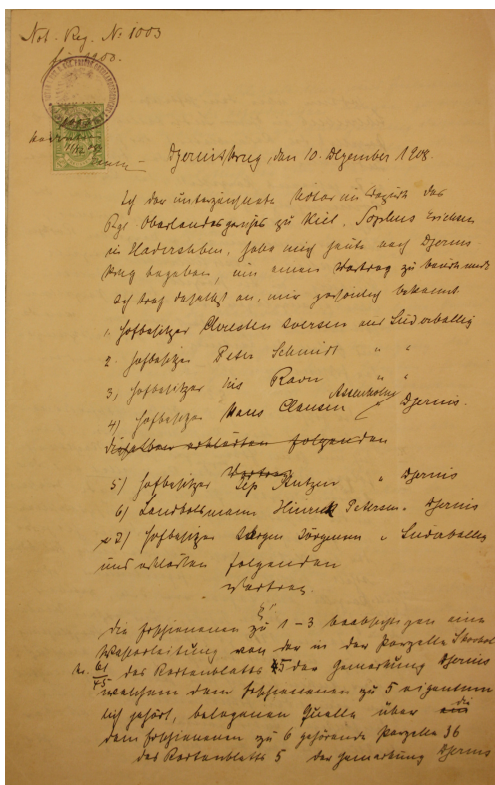 Not. Reg. No 1003
für 1908.
Djerniskrug, den 10. Dezember 1908.
Ich der unterzeichnete Notar im Bezirk des
Kgl. Oberlandesgerichts zu Kiel, Sophus Erichsen
in Hadersleben, habe mich heute nach Djernis
Krug begeben, um einen Vertrag zu beurkunden
Ich traf daselbst an, mir persönlich bekannt
1. Hofbesitzer Chresten Iversen aus Süderballig
2. Hofbesitzer Peter Schmidt " "
3, Hofbesitzer Nis Ravn " "
4) Hofbesitzer Hans Clausen Djernis.
dieselben erklärten folgenden
Vertrag
5) Hofbesitzer Jep Lutzen " Djernis
6) Landbolsmann Hinrich Petersen " Djernis
7) Hofbesitzer Jörgen Jörgensen " Süderballig
und erklärten folgenden
Vertrag.
die Erschienenen zu 1-3 beabsichtigen eine
Wasserleitung von der in der Parzelle
No. 61/45 des Kartenblatts 5 der Gemarkung Djernis
welche dem Erschienenen zu 5 eigentüm
lich gehört, belegenen Quelle über die
dem Erschienenen zu 6 gehörende Parzelle 36
des Kartenblatts 5 der Gemarkung Djernis